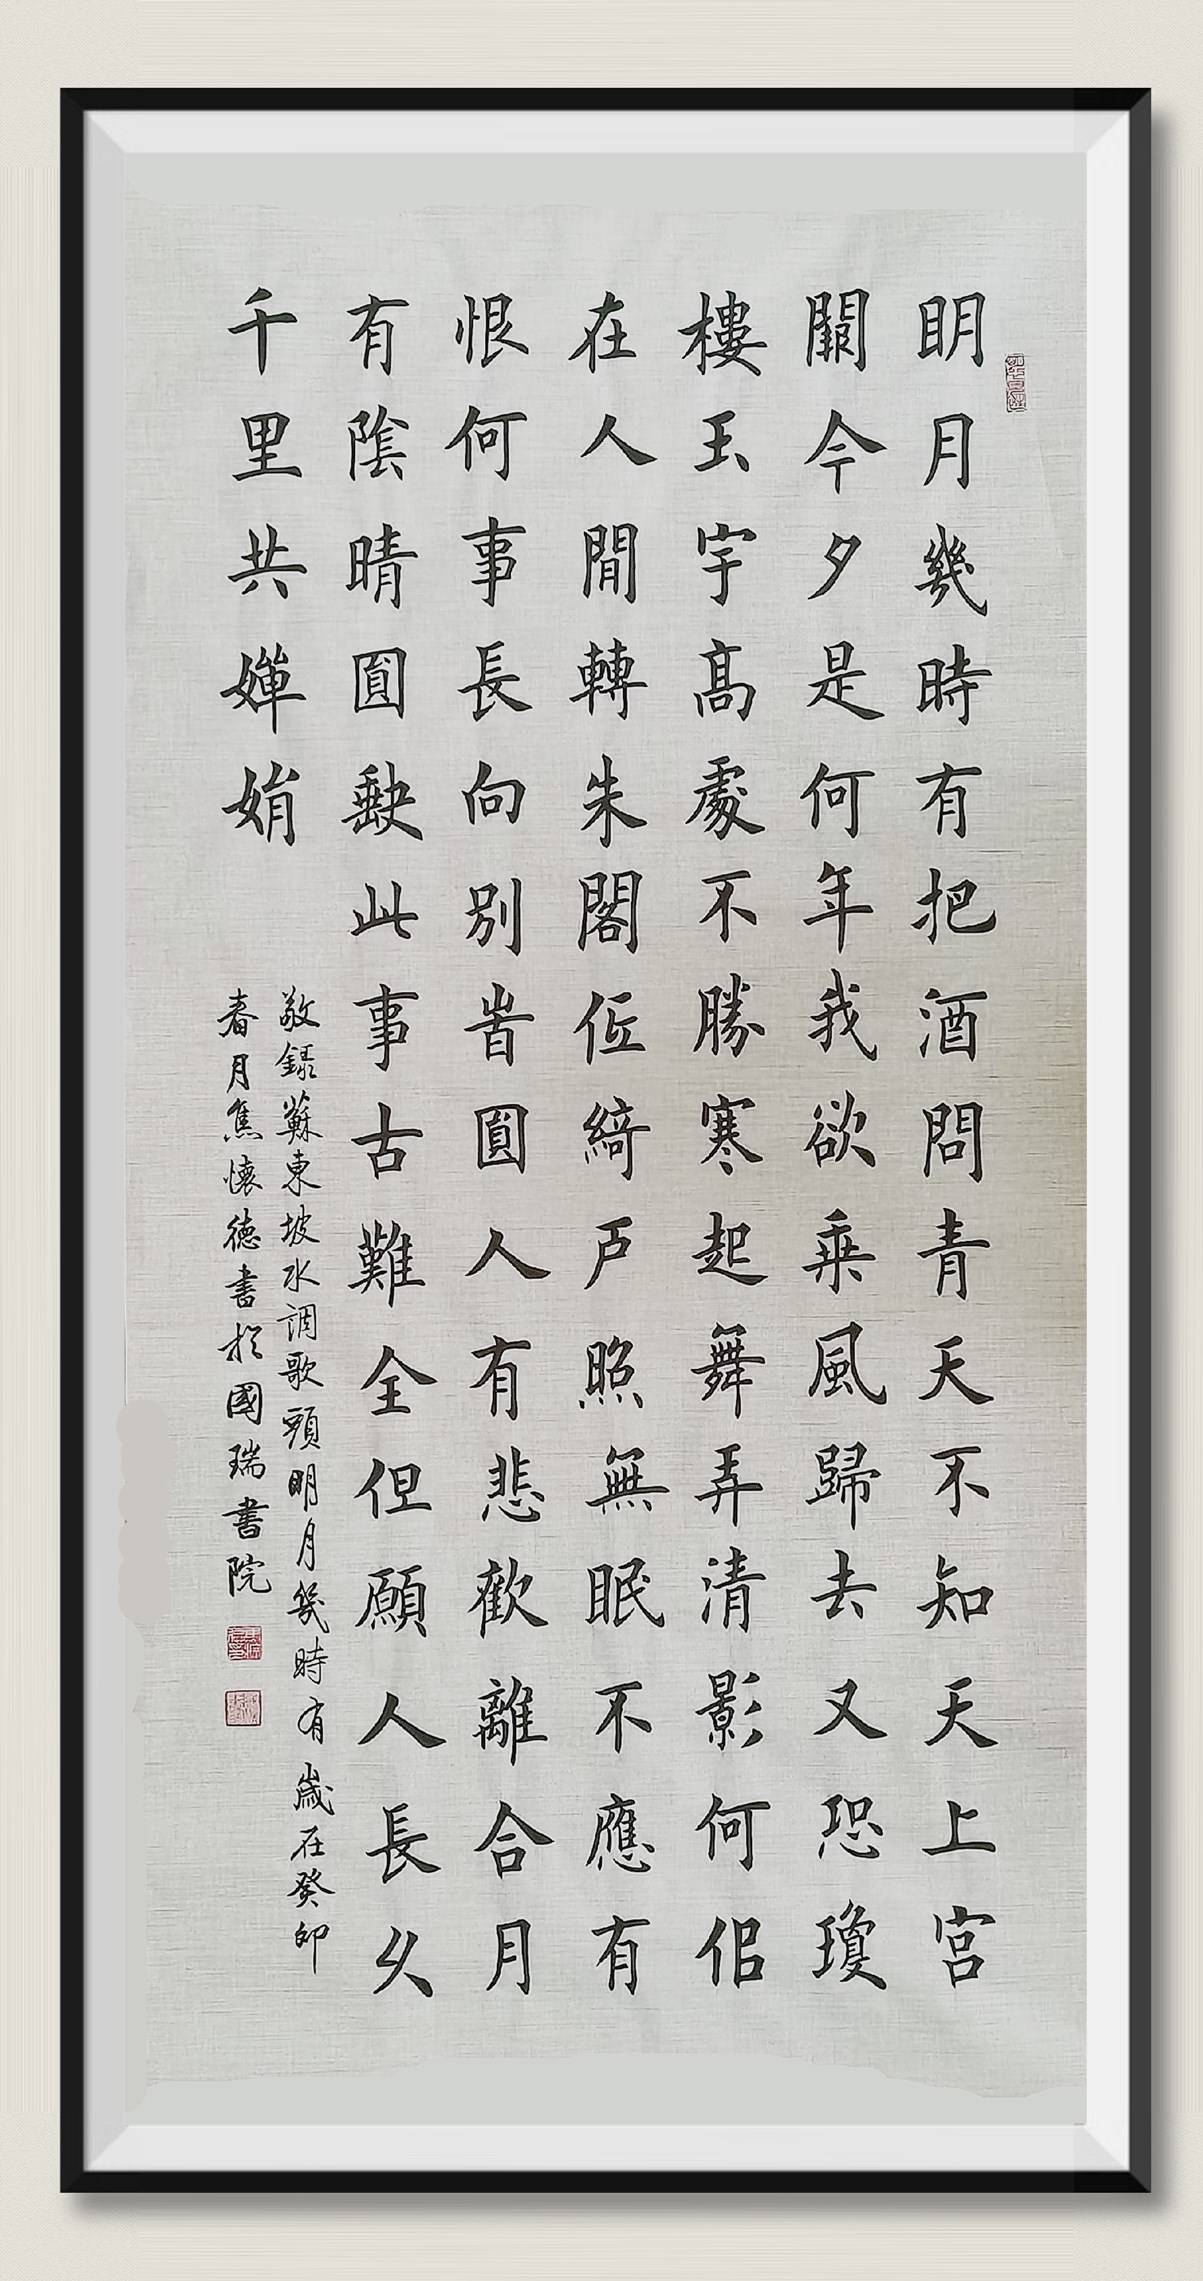 明月幾時有把酒問青天不知天上宮
闕今夕是何年我欲乗風歸去又恐瓊
樓玉宇髙處不勝寒起舞弄清影何佀
在人間轉朱閣低綺戶照無眠不應有
恨何事長向別峕圓人有悲歡離合月
有陰晴圓缺此事古難全但願人長久
千里共嬋娟
敬錄蘇東坡水調歌頭明月幾時有歲在癸卯
春月焦懷德書於國瑞書院